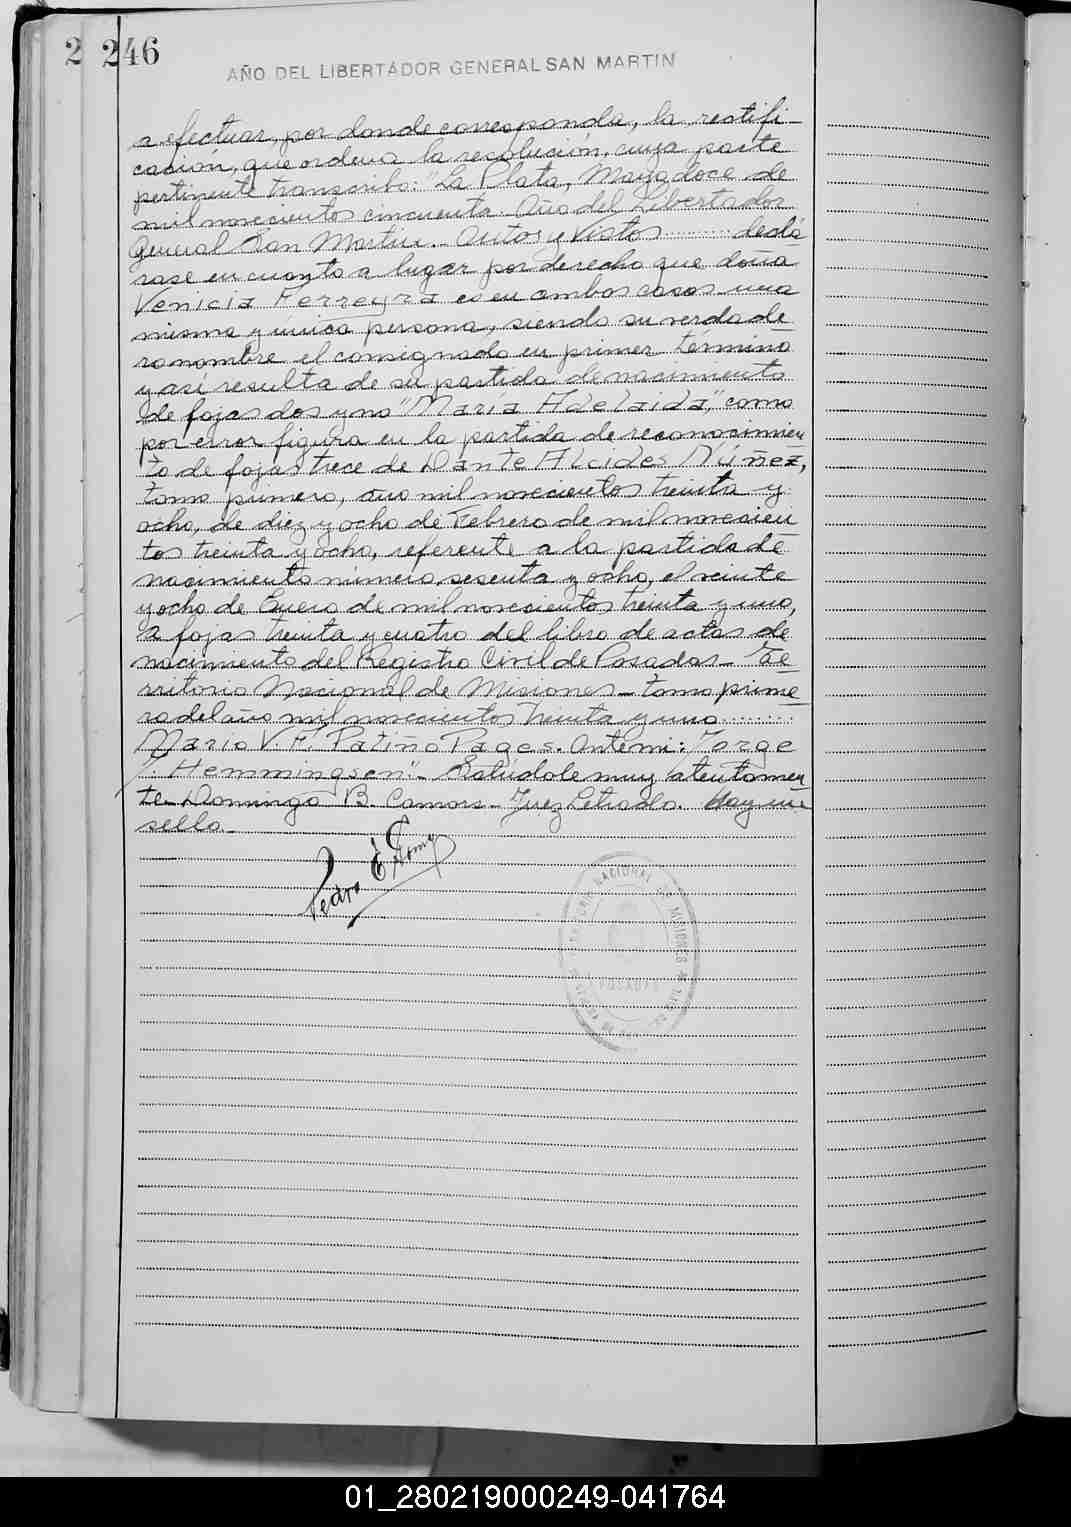 2 246
AÑO DEL LIBERTADOR GENERAL SAN MARTIN
a efectuar, por donde corresponda, la rectifi-
cación, que ordena la resolución, cuya parte
pertinente transcribo: "La Plata, Mayo doce de
mil novecientos cincuenta. Año del Libertador
General San Martin.- Autos y Vistos ........ declá
rase en cuanto a lugar por derecho que doña
Venicia Ferreyra es en ambos casos una
misma y única persona, siendo su verdade
ro nombre el consignado en primer término
y así resulta de su partida de nacimiento
de fojas dos y no "María Adelaida", como
por error figura en la partida de reconocimien
to de fojas trece de Dante Alcides Núñez,
tomo primero, año mil novecientos treinta y
ocho, de diez y ocho de Febrero de mil novecien
tos treinta y ocho, referente a la partida de
nacimiento número sesenta y ocho, el veinte
y ocho de Enero de mil novecientos treinta y uno,
a fojas treinta y cuatro del libro de actas de
nacimiento del Registro Civil de Posadas - Te
rritorio Nacional de Misiones - tomo prime
ro del año mil novecientos treinta y uno ........
Mario V. Patiño Pages. Ante mi: Jorge
Hemmingsen".- Salúdole muy atentamen
te. Domingo B. Camors - Juez Letrado. Hay un
sello.-
Pedro E.
NACIONAL DE MISIONES
POSADAS
01_280219000249-041764